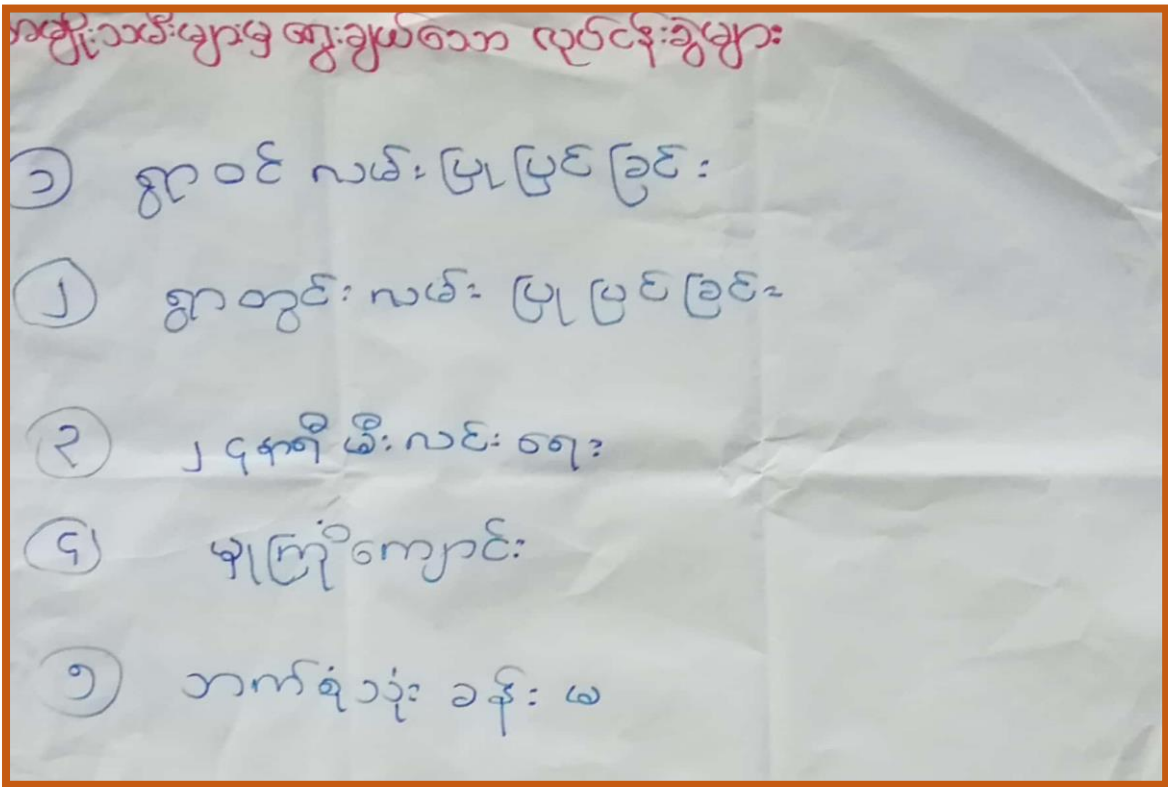 အမျိုးသမီးများမှ ရွေးချယ်သော လုပ်ငန်းခွဲများ
၁ ရွာဝင် လမ်း ပြုပြင်ခြင်း
၂ ရွာတွင်း လမ်း ပြုပြင်ခြင်း
၃ ၂၄နာရီ မီးလင်းရေး
၄ မူကြိုကျောင်း
၅ ဘက်စုံသုံး ခန်းမ